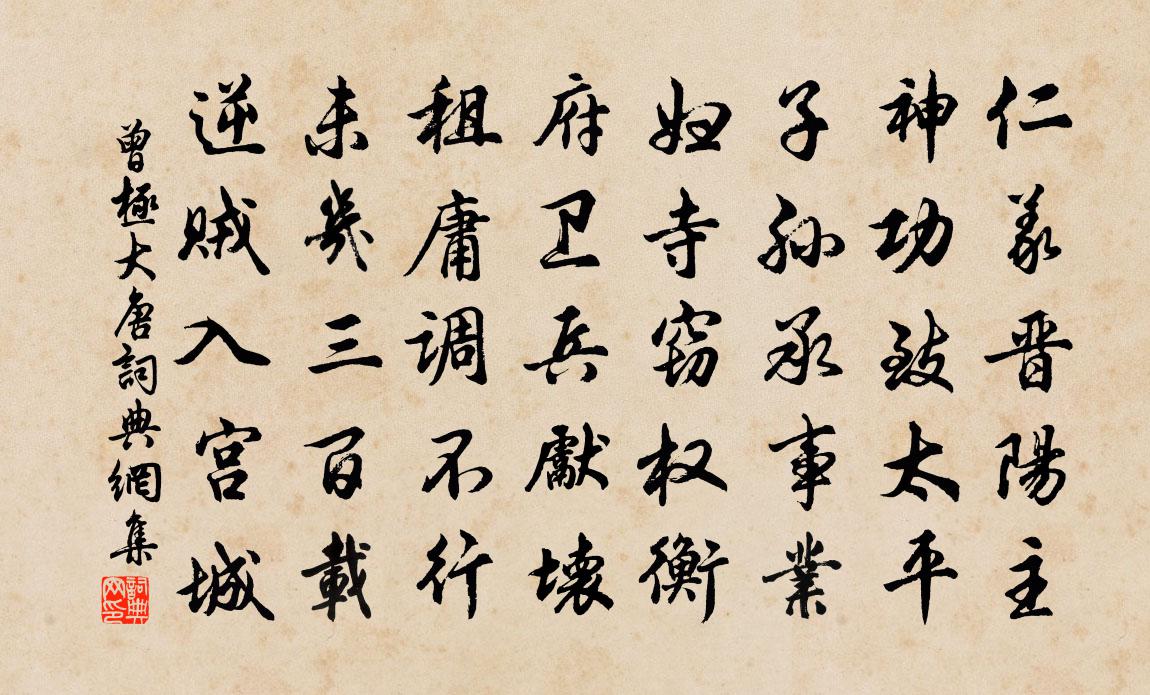 仁义晋陽主
神功致太平
子孙承事業
妇寺窃权衡
府卫兵獻壞
租庸调不行
未几三百載
逆贼入宫城
曾極大唐詞典網集
詞典网印